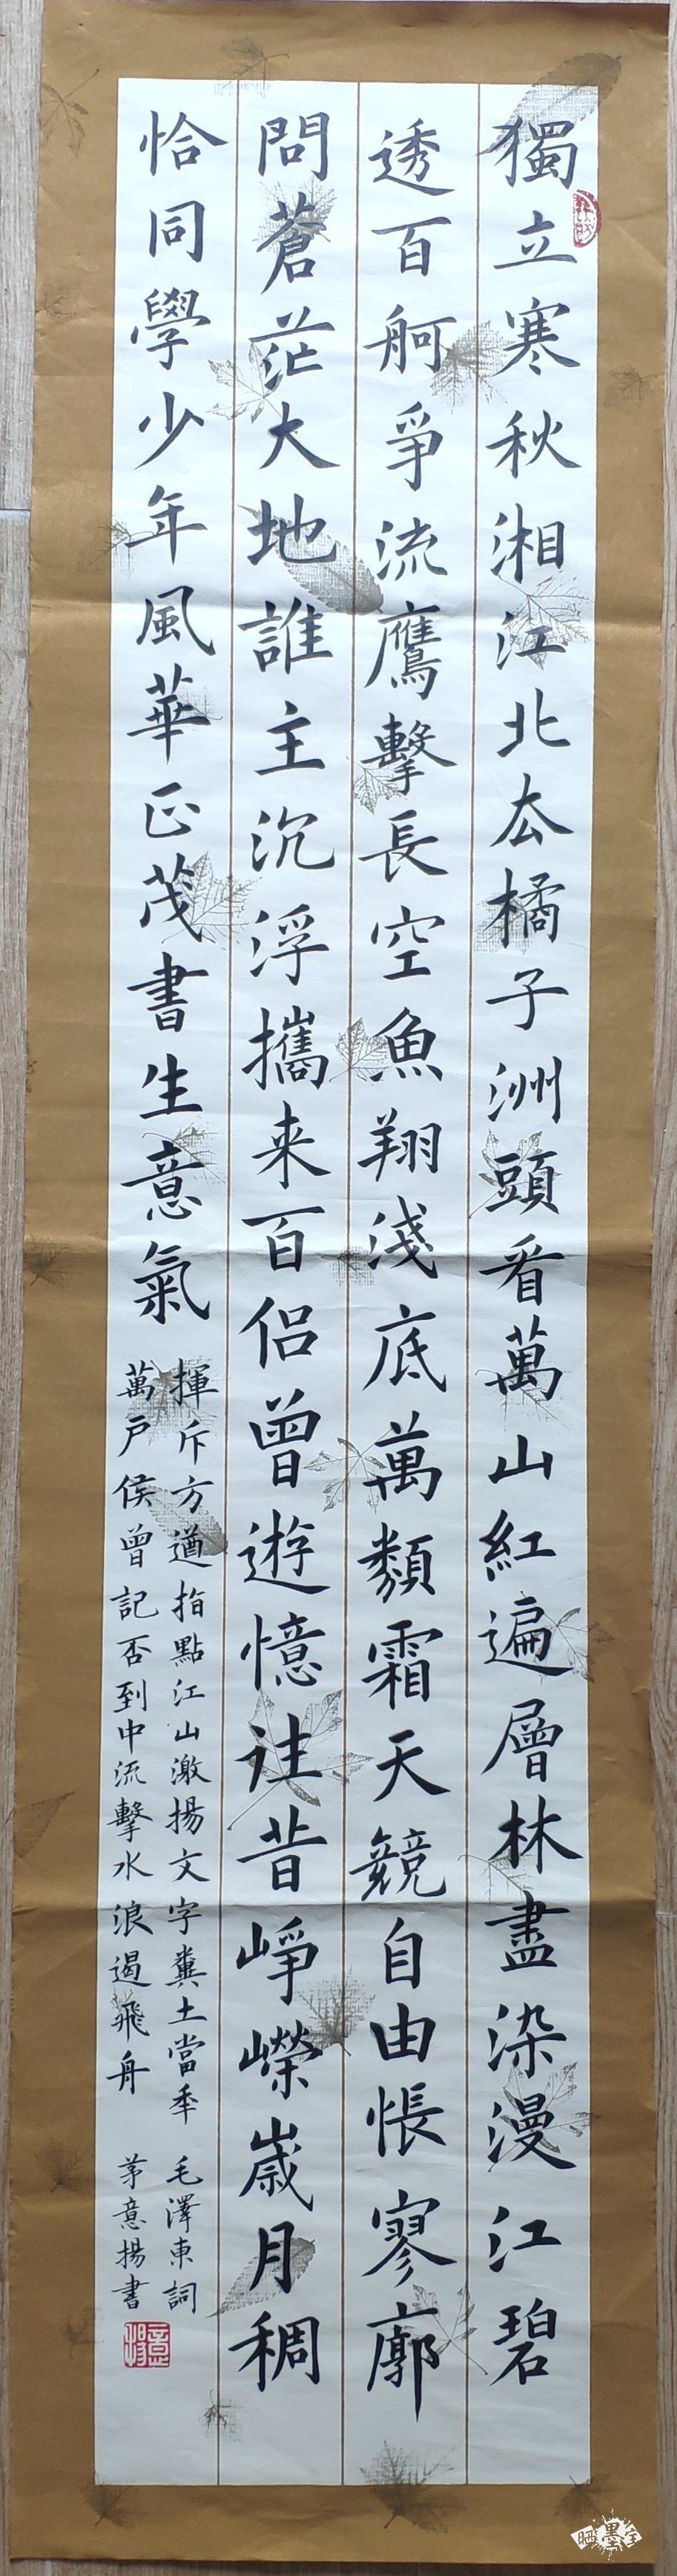 獨立寒秋湘江北去橘子洲頭看萬山紅遍層林盡染漫江碧
透百舸爭流鷹擊長空魚翔淺底萬類霜天競自由悵寥廓
問蒼茫大地誰主沉浮攜来百侣曾遊憶往昔崢嶸歲月稠
恰同學少年風華正茂書生意氣
揮斥方遒指點江山激揚文字糞土當年
萬戶侯曾記否到中流擊水浪遏飛舟
毛澤東詞
茅意揚書
晒墨宝